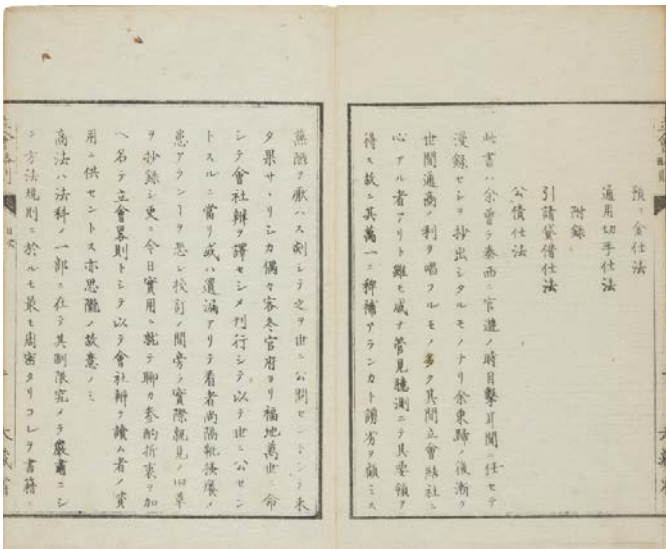 預リ金仕法
通用切手仕法
附録
引請貸借仕法
公債仕法
此書ハ余曽テ泰西ニ官遊ノ時目撃耳聞ニ任セテ
漫録セシヲ抄出シタルモノナリ余東歸ノ後漸ク
世間通商ノ利ヲ唱フルモノ多ク其間立會結社ニ
心アル者アリト雖モ咸ナ管見臆測ニテ其要領ヲ
得ス故ニ其萬一ニ裨補アランカト謭劣ヲ顧ミス
蕪陋ヲ厭ハス剞シテ之ヲ世ニ公問セントシテ未
タ果サヽリシカ偶々客冬官府ヨリ福地萬世ニ命
シテ會社辨ヲ譯セシメ刊行シテ以テ世ニ公セン
トスルニ當リ或ハ遺漏アリテ看者尚隔靴搔癢ノ
患アランヿヲ恐レ校訂ノ間旁ラ實際親見ノ旧草
ヲ抄録シ更ニ今日實用ニ就テ聊カ参酌折衷ヲ加
ヘ名テ立會畧則トシテ以テ會社辨ヲ讀ム者ノ資
用ニ供セントス亦思隴ノ故意ノミ
商法ハ法科ノ一部ニ在テ其制限究メテ嚴肅ニシ
テ方法規則ニ於ルモ最モ周密タリコレヲ書籍ニ
大藏省